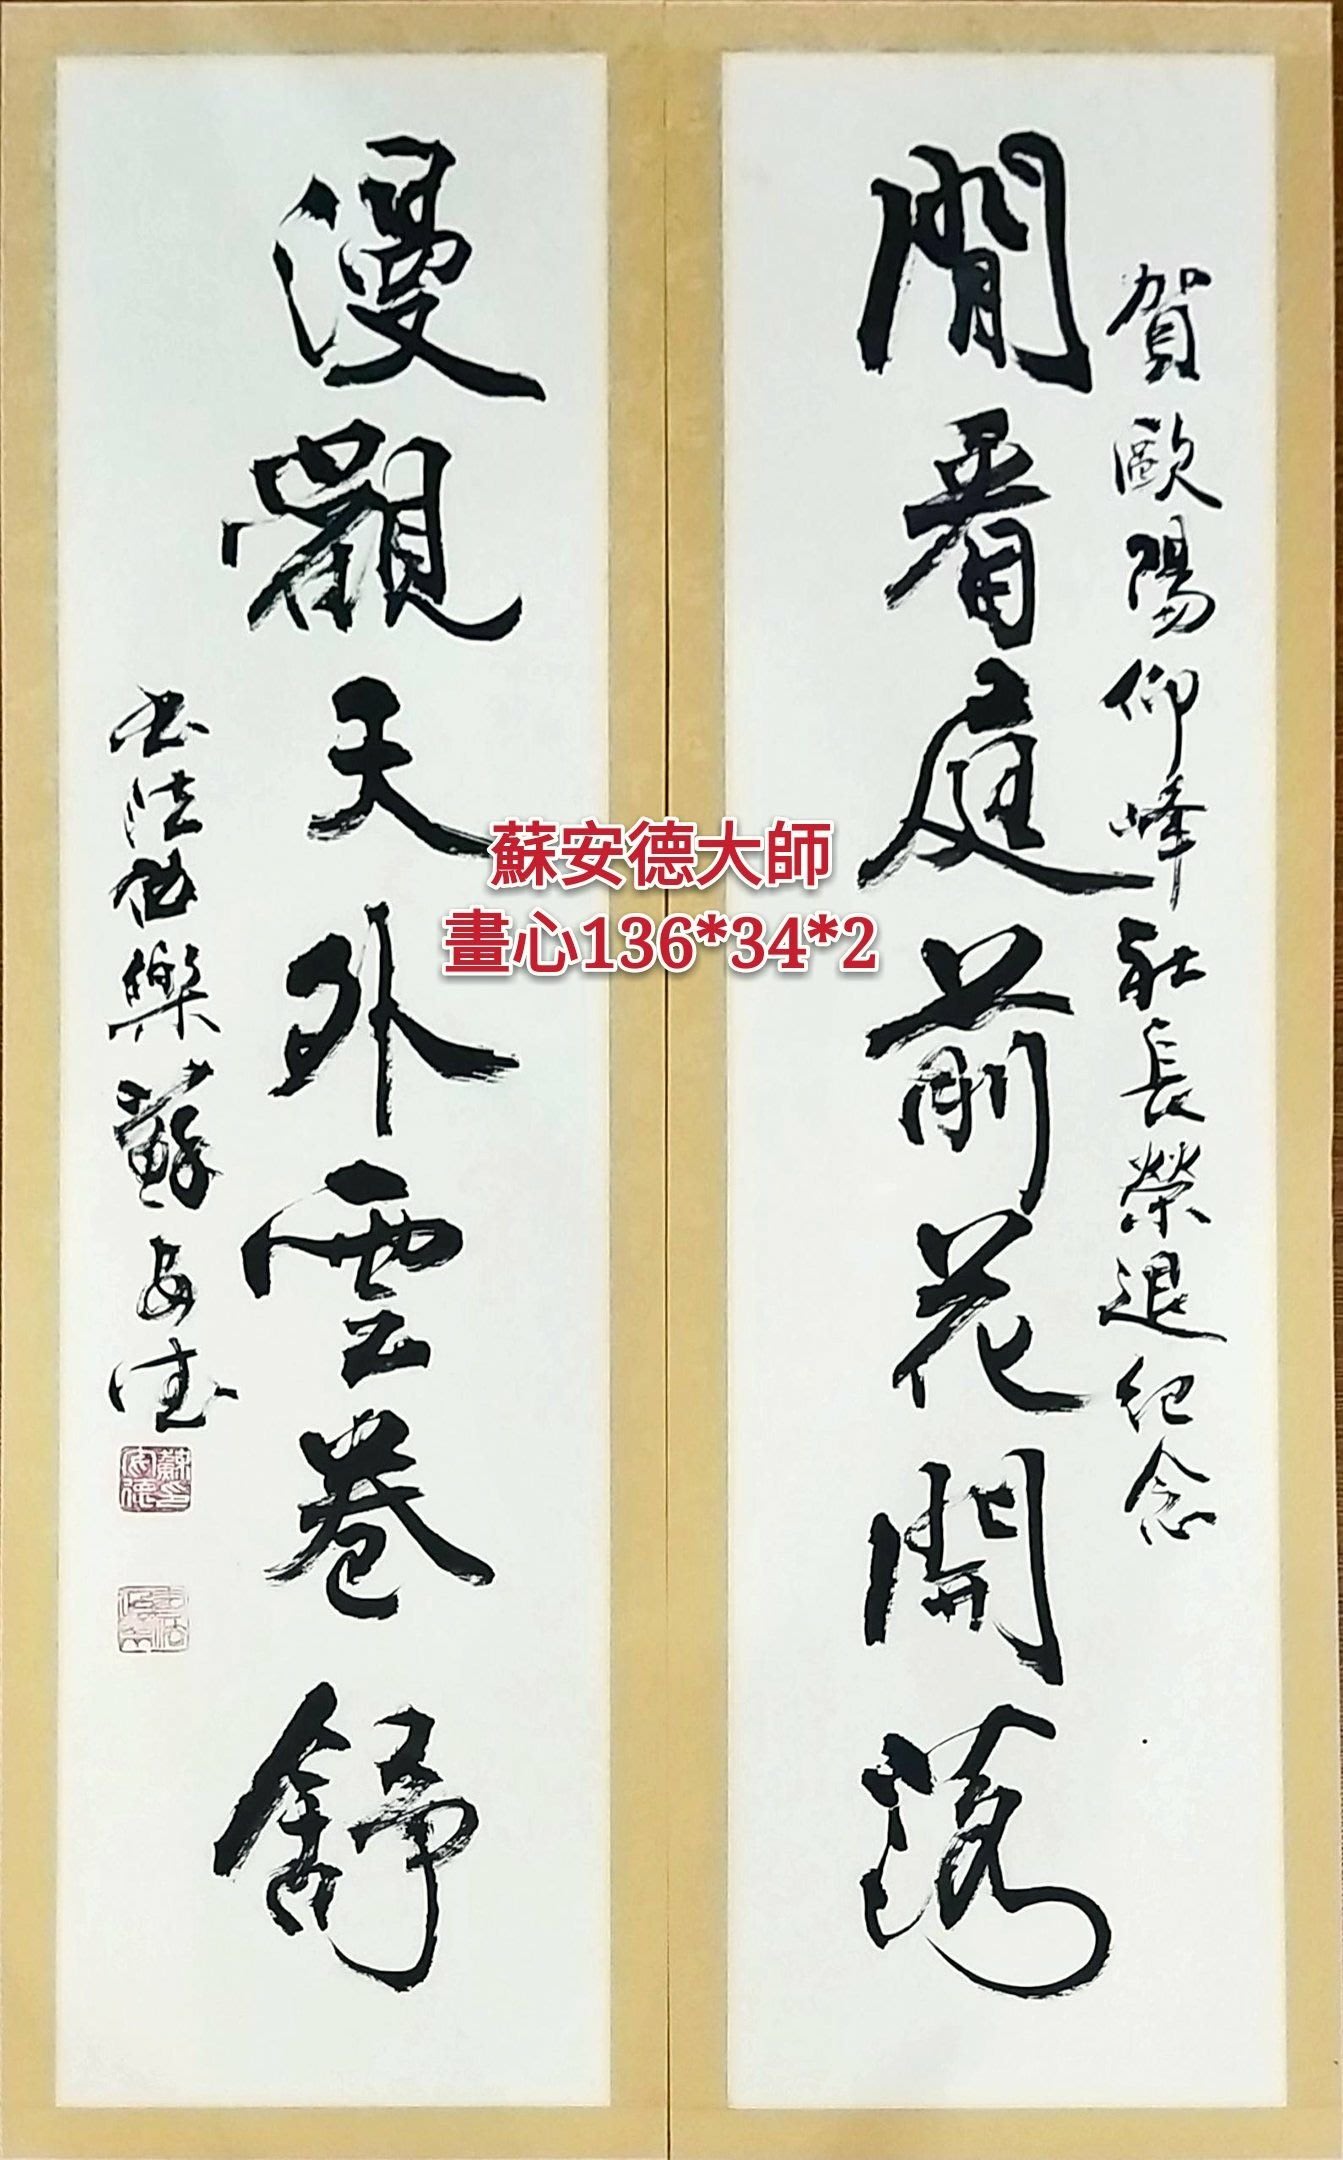 賀歐陽仰峰社長榮退紀念
閒看庭前花開落
漫觀天外雲卷舒
書法伯樂蘇安德
蘇安德印
蘇安德大師
畫心136*34*2